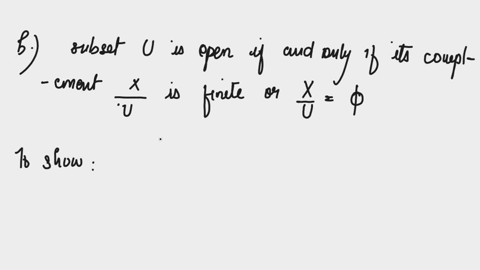 B.) subset U is open if and only if its compl-
-ement X/U is finite or X/U = ϕ
To show: